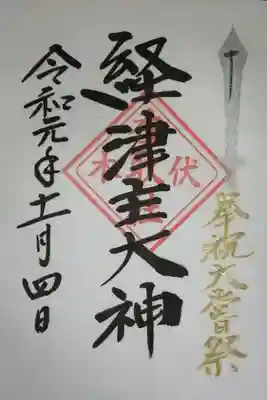 奉祝大嘗祭
経津主大神
伏木
令和元年十一月四日